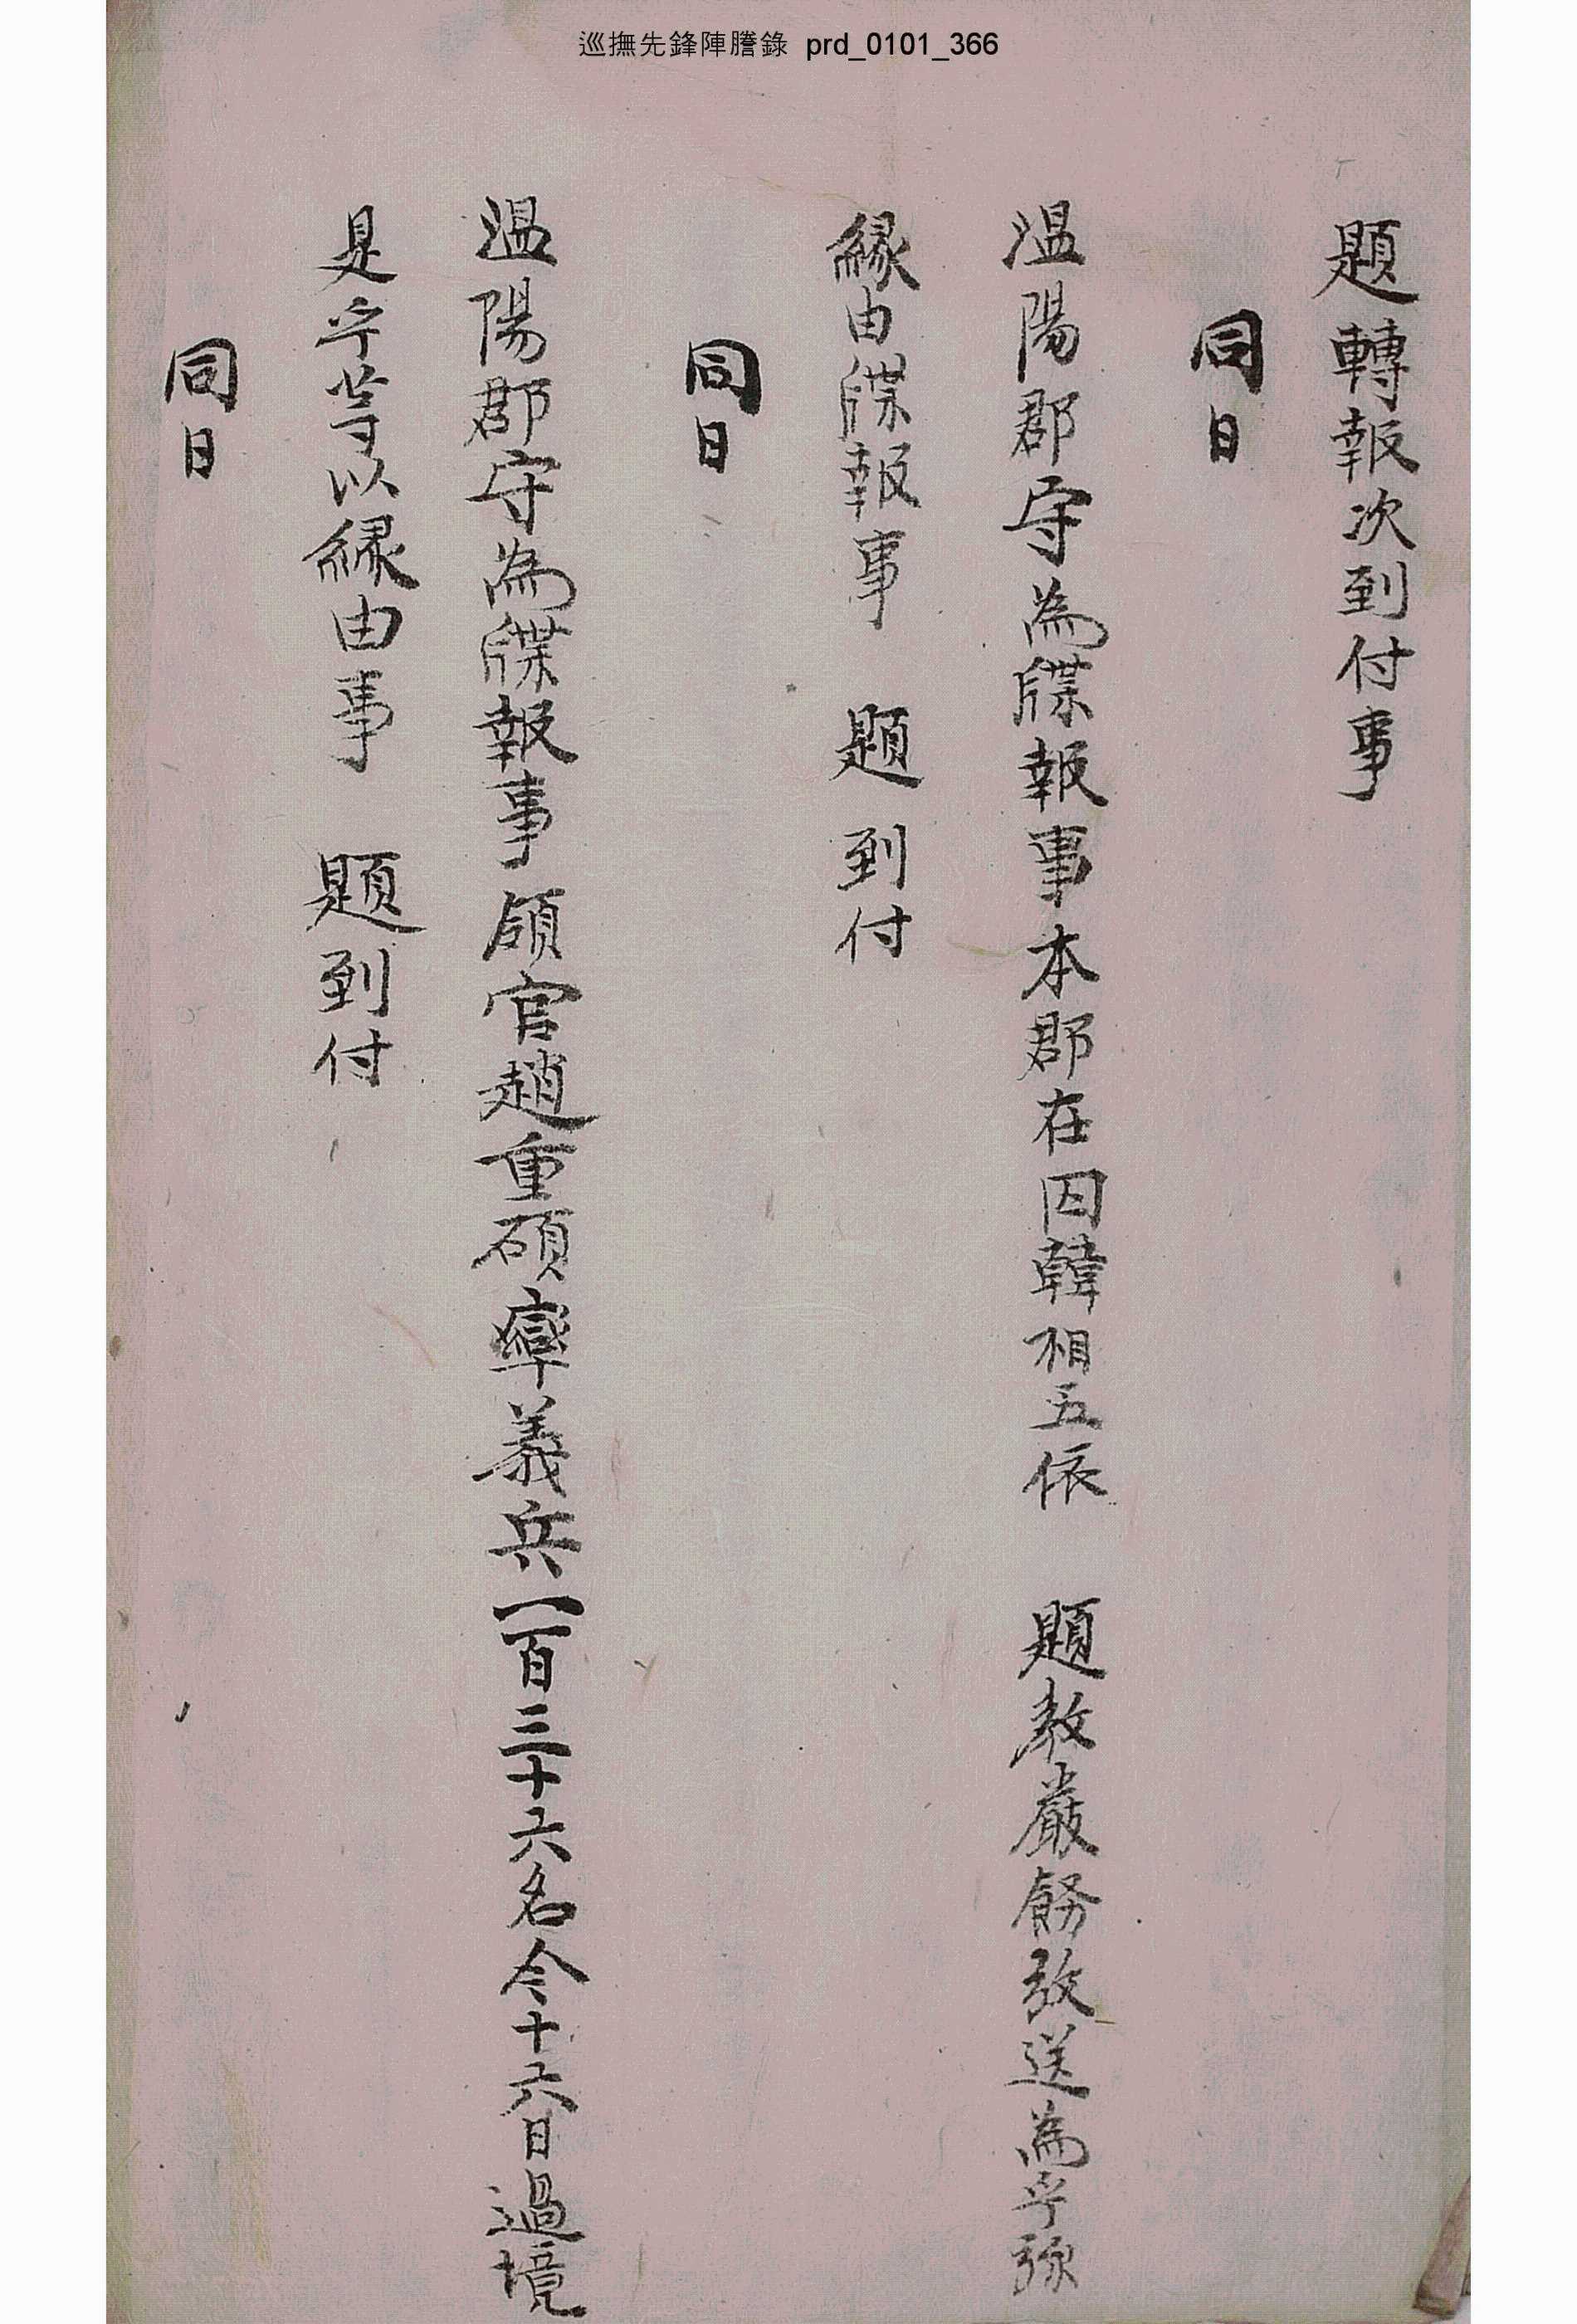 巡撫先鋒陣謄錄 prd_0101_366
題轉報次到付事
同日
溫陽郡守為牒報事本郡在囚韓相五依 題敎嚴飭放送為乎㫆
緣由牒報事 題到付
同日
溫陽郡守為牒報事領官趙重碩率義兵一百三十六名今十六日過境
是乎等以緣由事 題到付
同日